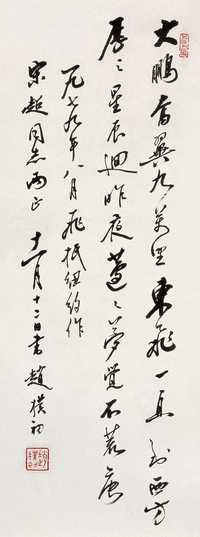 大鹏奋翼九万里东飞一直到西方
历〻星辰回昨夜蘧〻梦觉不荒唐
一九七九年八月飞抵纽约作
宋超同志两正
十一月十二日书赵朴初